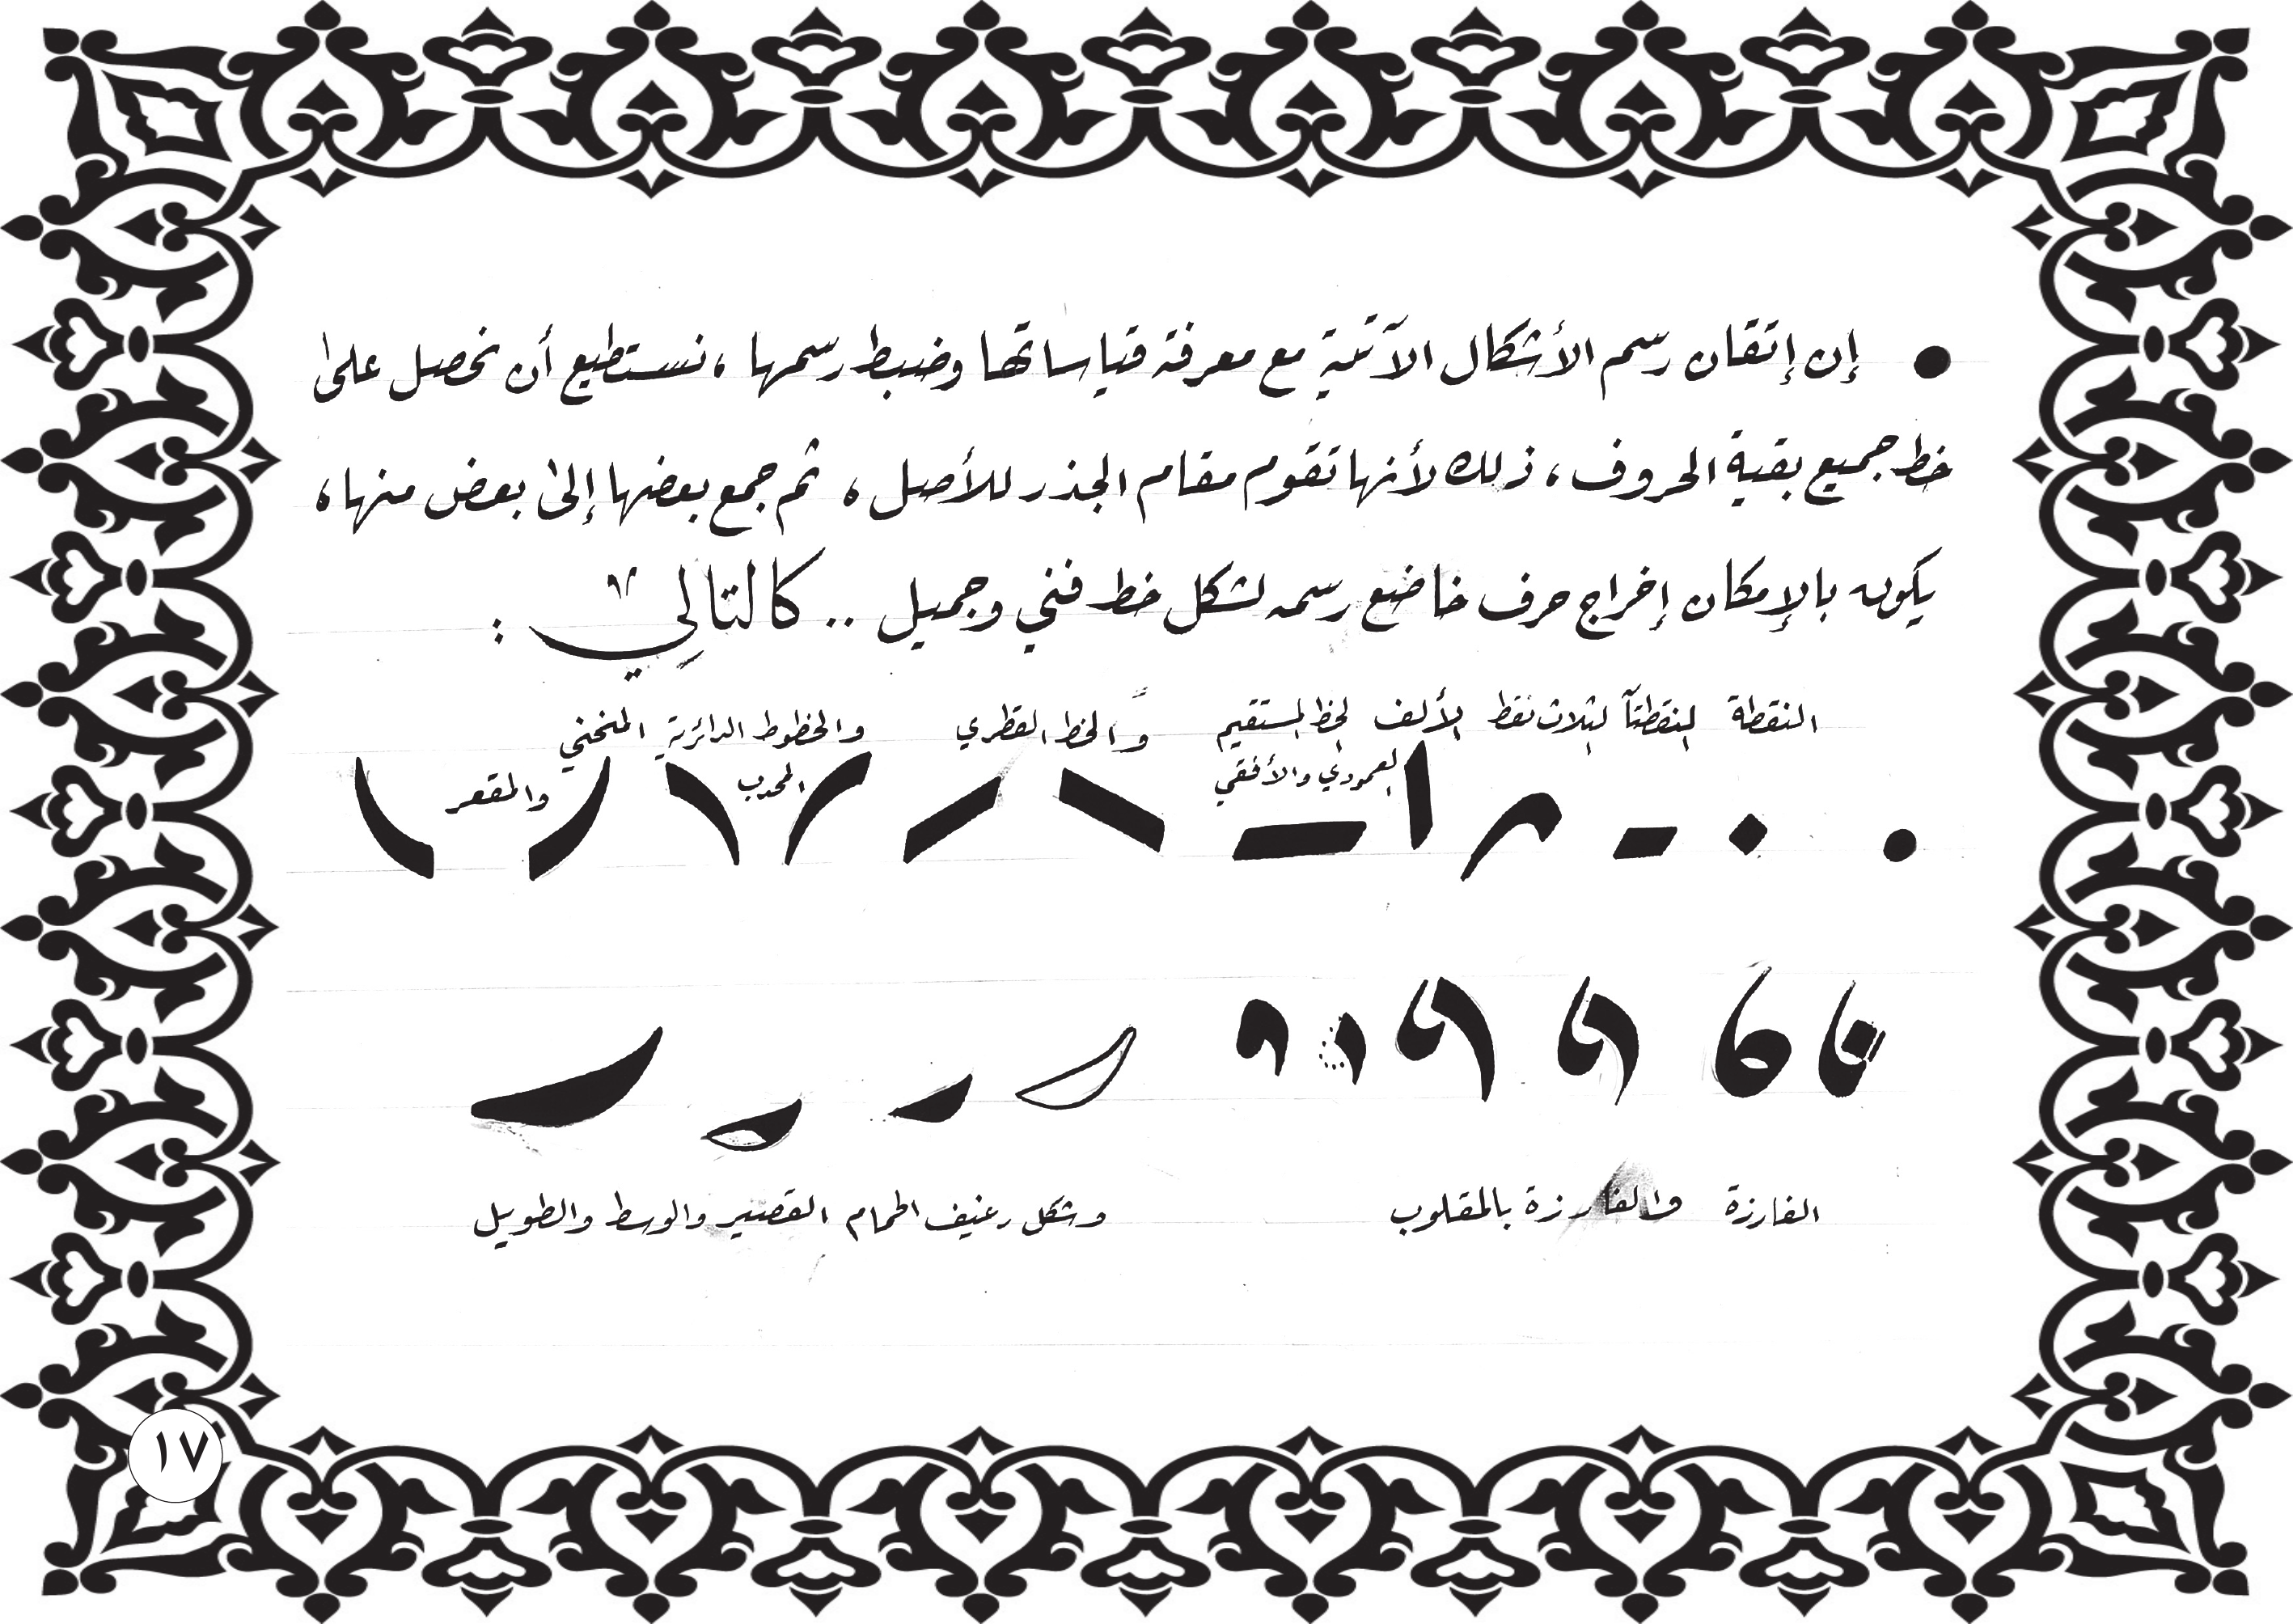 ● إن إتقان رسم الأشكال الآتية مع معرفة قياساتها وضبط رسمها ، نستطيع أن نحصل على
خط جميع بقية الحروف ، ذلك لأنها تقوم مقام الجذر للأصل ، ثم جمع بعضها إلى بعض منها ،
يكون بالإمكان إخراج حرف خاضع رسمه لشكل خط فني وجميل .. كالتالي :
النقطة النقطتا الثلاث نقط الألف الخط المستقيم والخط القطري والخطوط الدائرية المنحني
العمودي والأفقي المحدب والمقعر
الفارزة والفارزة بالمقلوب وشكل رغيف الحمام القصير والوسط والطويل
١٧